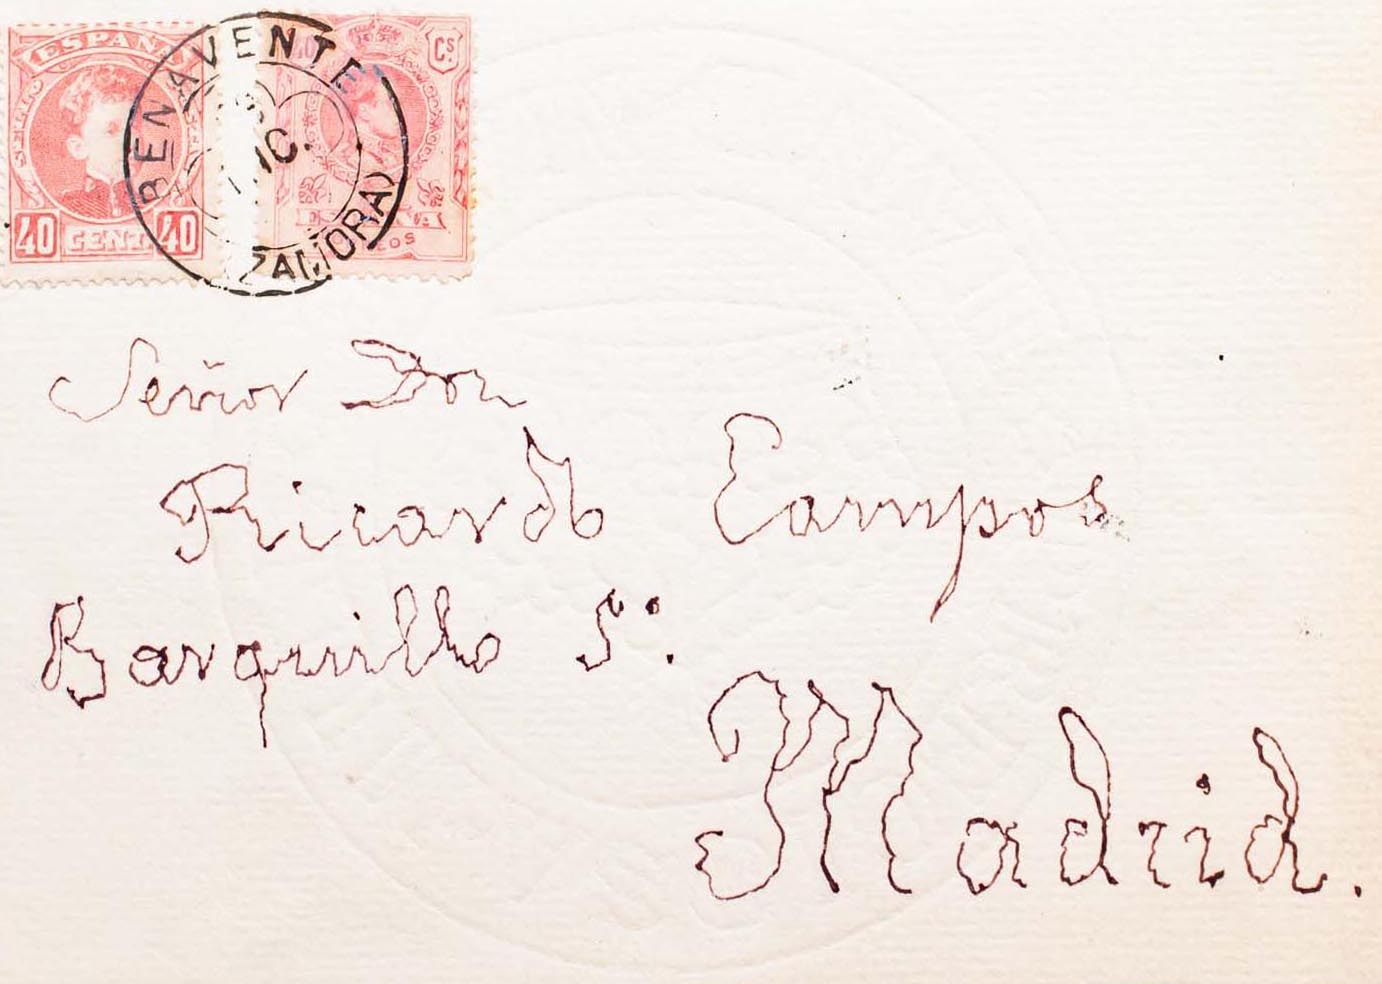 ESPAÑA
40 CENT 40
Cs
BENAVENTE
(ZAMORA)
Señor Don
Ricardo Campos
Barquillo 5:
Madrid.